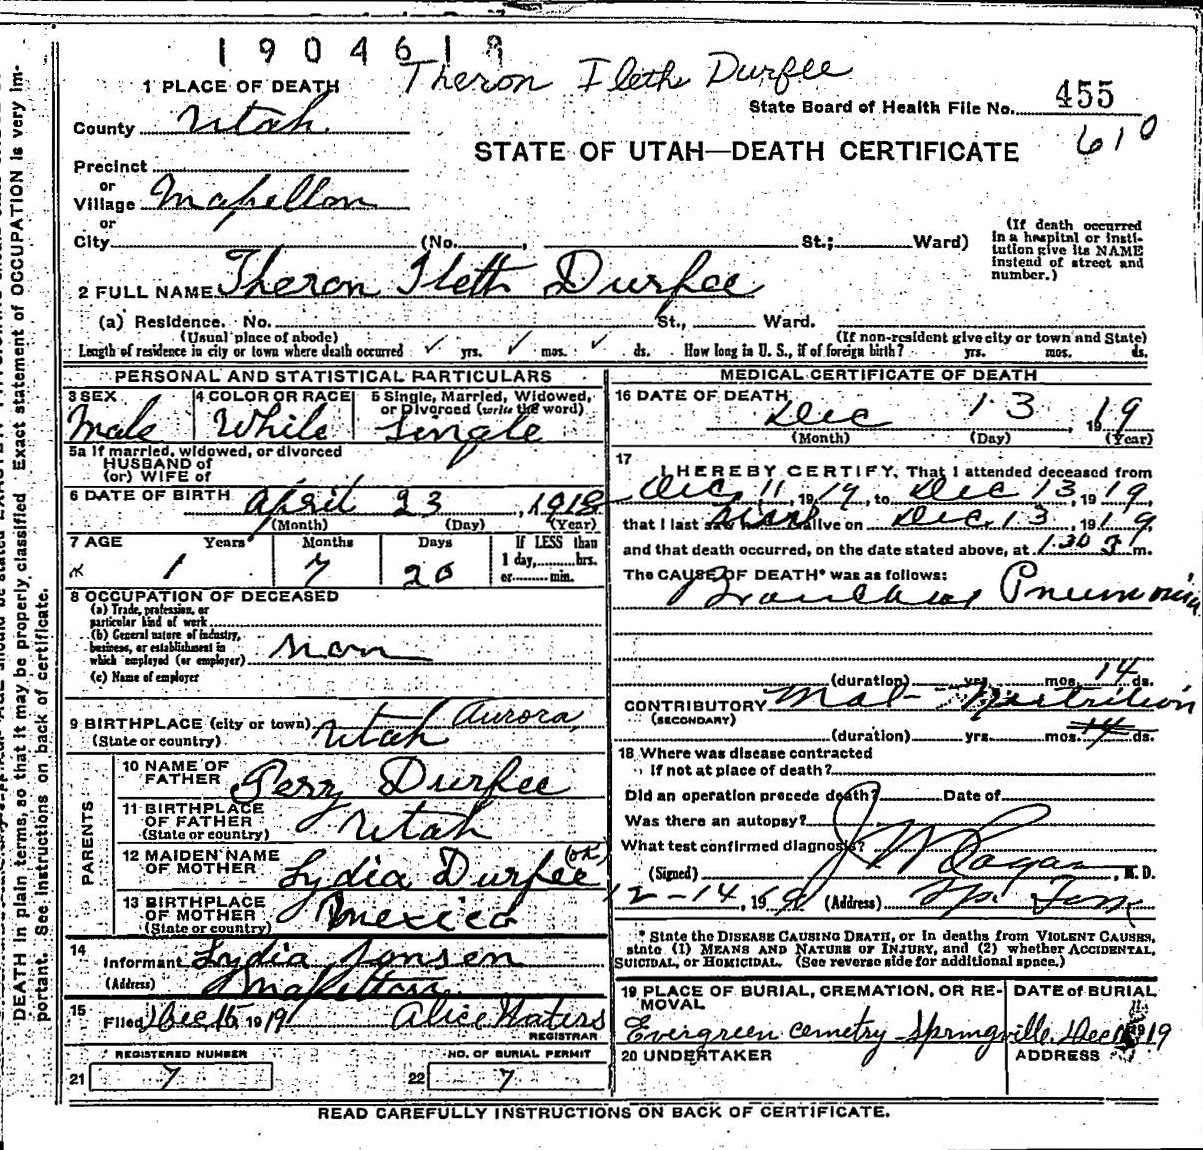 1904618
Theron Ileth Durfee
1 PLACE OF DEATH
State Board of Health File No. 455
County Utah
610
STATE OF UTAH—DEATH CERTIFICATE
Precinct
or
Village Mapellon
or
City (No. , St.; Ward)
(If death occurred in a hospital or institution give its NAME instead of street and number.)
2 FULL NAME Theron Ileth Durfee
(a) Residence. No. St., Ward.
(Usual place of abode) (If non-resident give city or town and State)
Length of residence in city or town where death occurred ✓ yrs. ✓ mos. ✓ ds. How long in U. S., if of foreign birth? yrs. mos. ds.
PERSONAL AND STATISTICAL PARTICULARS
3 SEX Male
4 COLOR OR RACE White
5 Single, Married, Widowed, or Divorced (write the word) Single
5a If married, widowed, or divorced
HUSBAND of
(or) WIFE of
6 DATE OF BIRTH April 23, 1918
(Month) (Day) (Year)
7 AGE Years Months Days If LESS than
1 7 20 1 day, hrs.
or min.
8 OCCUPATION OF DECEASED
(a) Trade, profession, or
particular kind of work
(b) General nature of industry,
business, or establishment in
which employed (or employer) non
(c) Name of employer
9 BIRTHPLACE (city or town) Aurora,
(State or country) Utah
PARENTS
10 NAME OF FATHER Perry Durfee
11 BIRTHPLACE OF FATHER
(State or country) Utah
12 MAIDEN NAME OF MOTHER Lydia Durfee (ok)
13 BIRTHPLACE OF MOTHER
(State or country) Mexico
14 Informant Lydia Jensen
(Address) Mapelton
15 Filed Dec 15, 1919 Alice Waters
REGISTRAR
REGISTERED NUMBER NO. OF BURIAL PERMIT
21 7 22 7
MEDICAL CERTIFICATE OF DEATH
16 DATE OF DEATH Dec 13, 1919
(Month) (Day) (Year)
17 I HEREBY CERTIFY, That I attended deceased from
Dec 11, 1919, to Dec 13, 1919,
that I last saw him alive on Dec. 13, 1919
and that death occurred, on the date stated above, at 1.30 m.
The CAUSE OF DEATH* was as follows:
Bronchial Pneumonia
(duration) yrs. mos. 14 ds.
CONTRIBUTORY Mal-Nutrition
(SECONDARY)
(duration) yrs. mos. 14 ds.
18 Where was disease contracted
If not at place of death?
Did an operation precede death? Date of
Was there an autopsy?
What test confirmed diagnosis?
(Signed) , M.D.
12-14, 1919 (Address)
* State the DISEASE CAUSING DEATH, or in deaths from VIOLENT CAUSES,
state (1) MEANS AND NATURE OF INJURY, and (2) whether ACCIDENTAL,
SUICIDAL, or HOMICIDAL. (See reverse side for additional space.)
19 PLACE OF BURIAL, CREMATION, OR REMOVAL DATE of BURIAL
Evergreen cemetry Springville. Dec 1919
20 UNDERTAKER ADDRESS
READ CAREFULLY INSTRUCTIONS ON BACK OF CERTIFICATE.
DEATH in plain terms, so that it may be properly classified Exact statement of OCCUPATION is very im-
portant. See instructions on back of certificate.